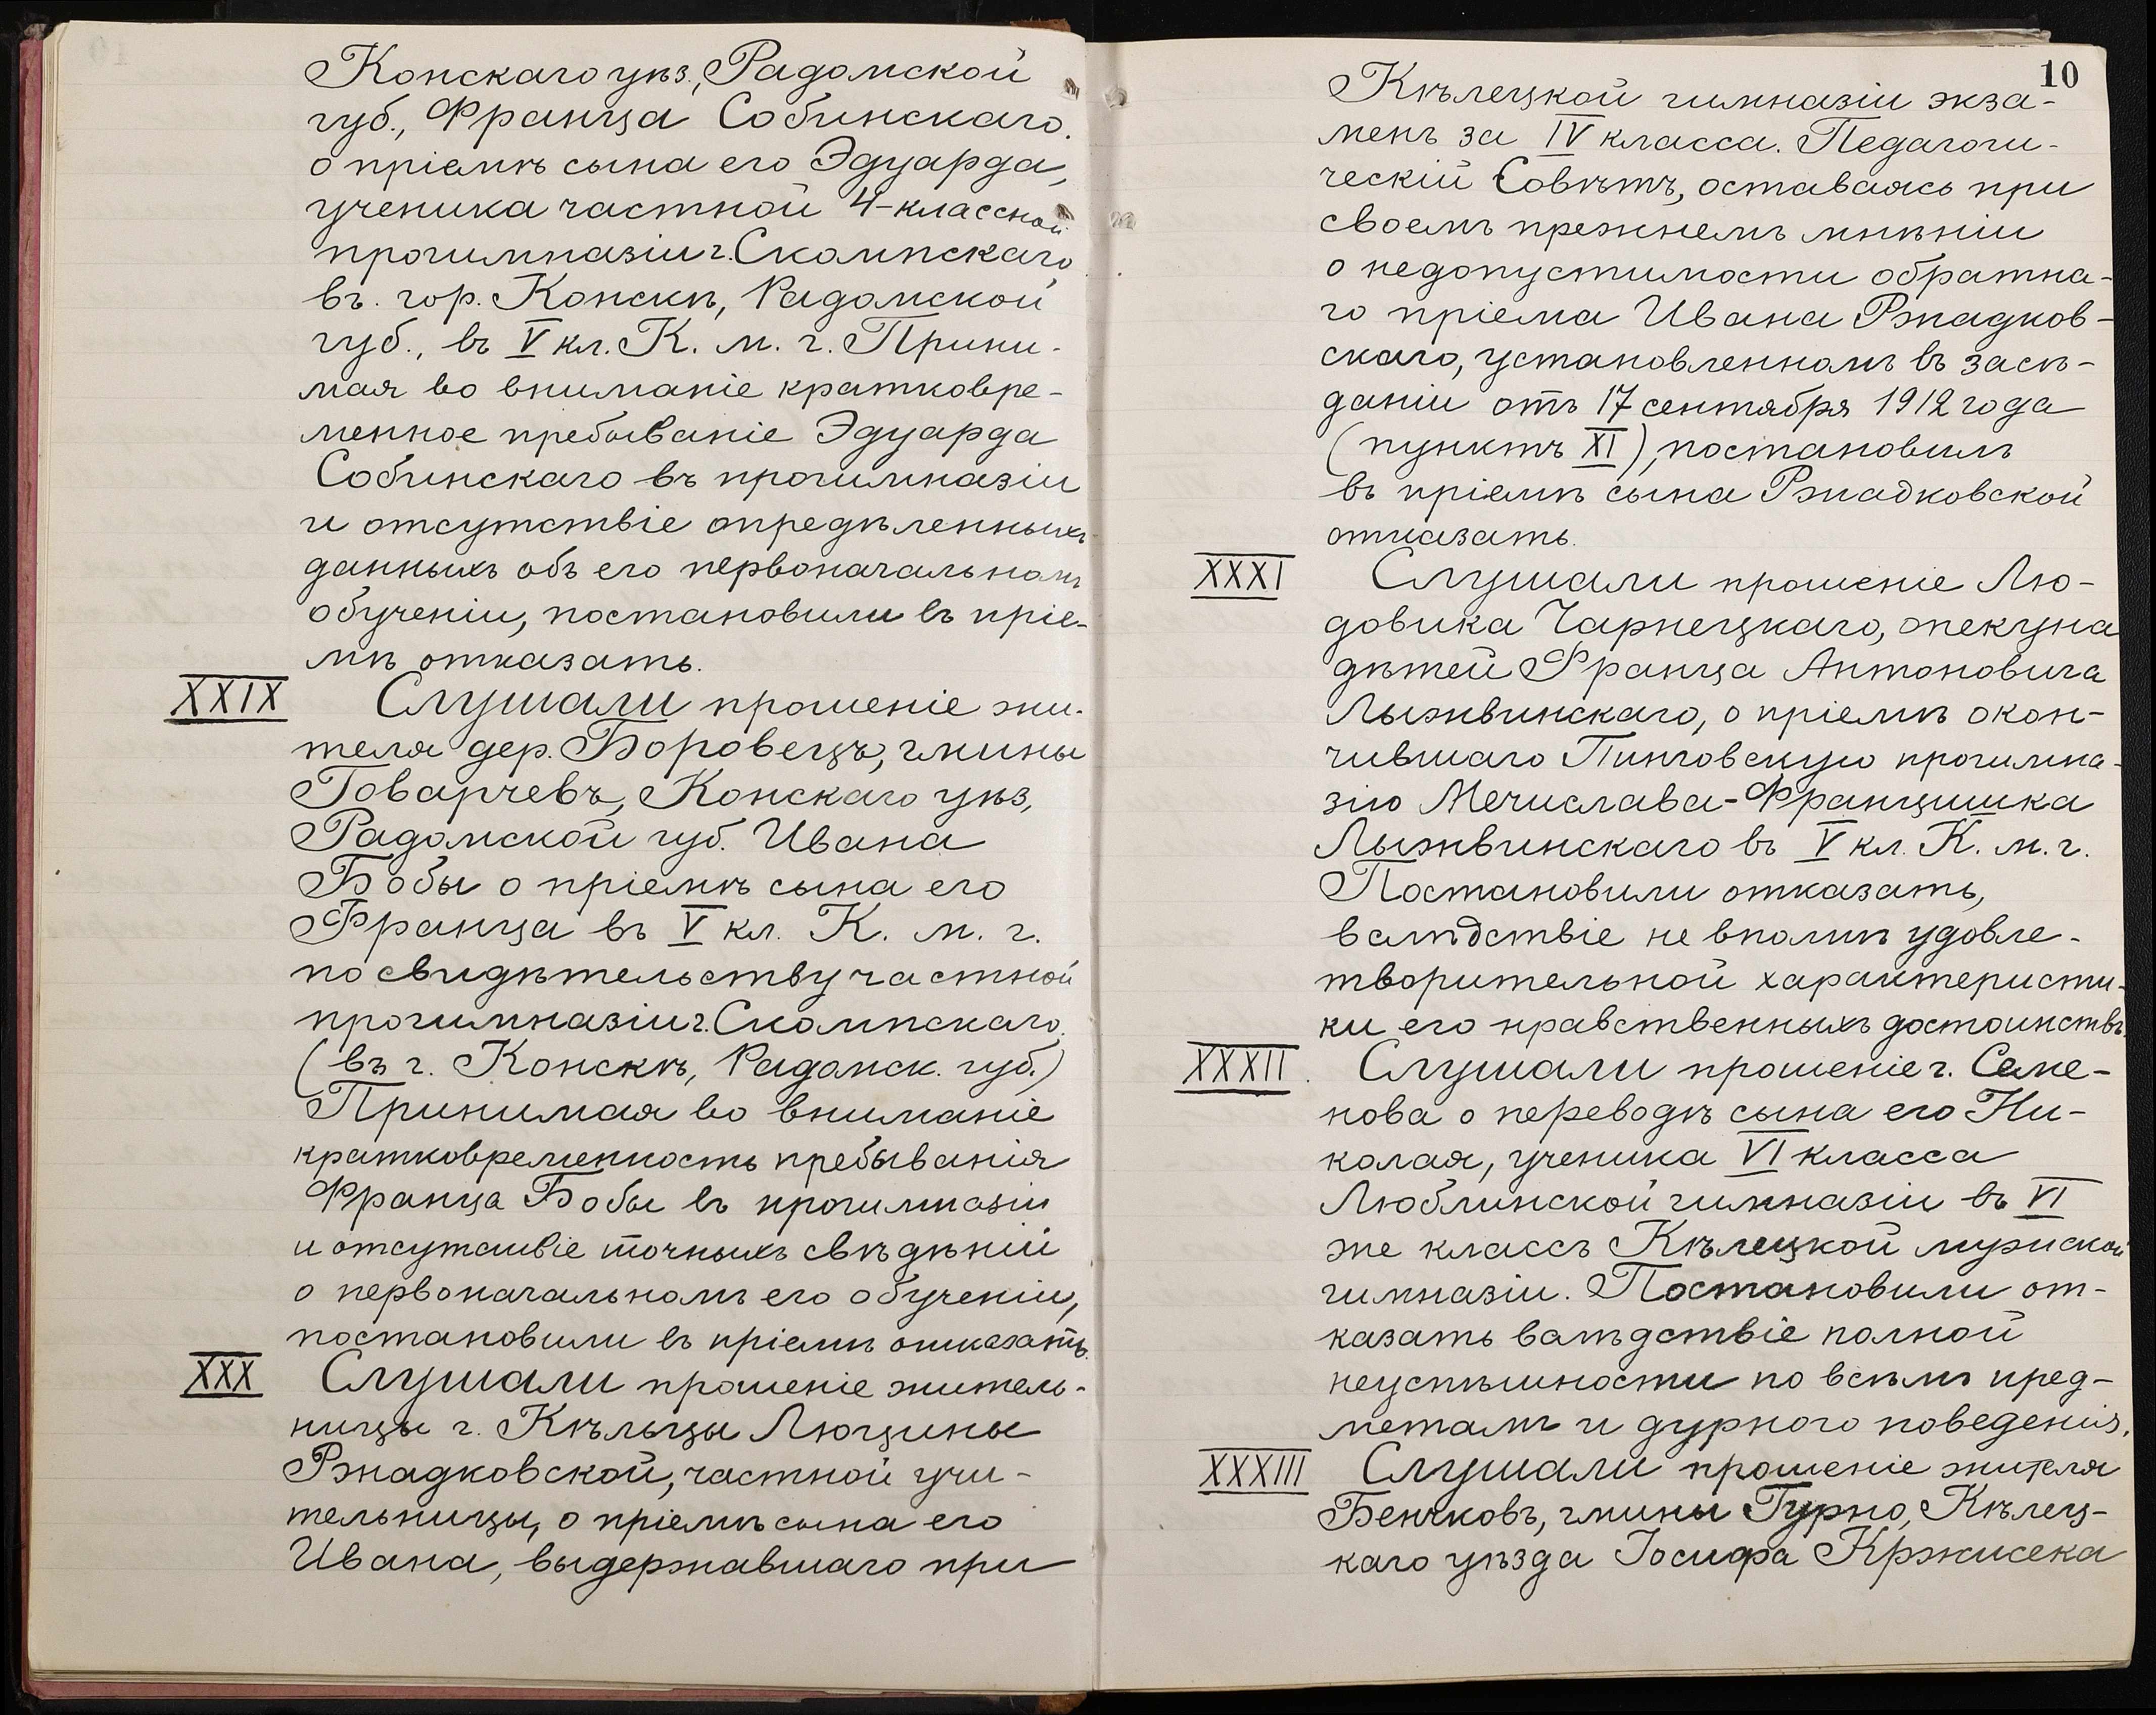 Конскаго уѣз., Радомской
губ., Франца Собинскаго.
о пріемѣ сына его Эдуарда,
ученика частной 4-классной
прогимназіи г. Скомпскаго
въ. гор. Конскѣ, Радомской
губ., въ V кл. К. м. г. Прини-
мая во вниманіе кратковре-
менное пребываніе Эдуарда
Собинскаго въ прогимназіи
и отсутствіе опредѣленныхъ
данныхъ объ его первоначальномъ
обученіи, постановили въ пріе-
мѣ отказать.
XXIX Слушали прошеніе жи-
теля дер. Боровецъ, гмины
Говарчевъ, Конскаго уѣз,
Радомской губ. Ивана
Бобы о пріемѣ сына его
Франца въ V кл. К. м. г.
по свидѣтельству частной
прогимназіи г. Скомпскаго.
(въ г. Конскѣ, Радомск. губ.)
Принимая во вниманіе
кратковременность пребыванія
Франца Бобы въ прогимназіи
и отсутствіе точныхъ свѣдѣній
о первоначальномъ его обученіи,
постановили въ пріемѣ отказать.
XXX Слушали прошеніе житель-
ницы г. Кѣльцы Люцины
Ржадковской, частной учи-
тельницы, о пріемѣ сына его
Ивана, выдержавшаго при
10
Кѣлецкой гимназіи экза-
менъ за IV класса. Педагоги-
ческій Совѣтъ, оставаясь при
своемъ прежнемъ мнѣніи
о недопустимости обратна-
го пріема Ивана Ржадков-
скаго, установленномъ въ засѣ-
даніи отъ 17 сентября 1912 года
(пунктъ XI), постановилъ
въ пріемѣ сына Ржадковской
отказать.
XXXI Слушали прошеніе Лю-
довика Чарнецкаго, опекуна
дѣтей Франца Антоновича
Лыжвинскаго, о пріемѣ окон-
чившаго Пинчовскую прогимна-
зію Мечислава-Францишка
Лыжвинскаго въ V кл. К. м. г.
Постановили отказать,
вслѣдствіе не вполнѣ удовле-
творительной характеристи-
ки его нравственныхъ достоинствъ.
XXXII. Слушали прошеніе г. Семе-
нова о переводѣ сына его Ни-
колая, ученика VI класса
Люблинской гимназіи въ VI
же классъ Кѣлецкой мужской
гимназіи. Постановили от-
казать вслѣдствіе полной
неуспѣшности по всѣмъ пред-
метамъ и дурного поведенія.
XXXIII Слушали прошеніе жителя
Бенчковъ, гмины Гурно, Кѣлец-
каго уѣзда Іосифа Кржисека